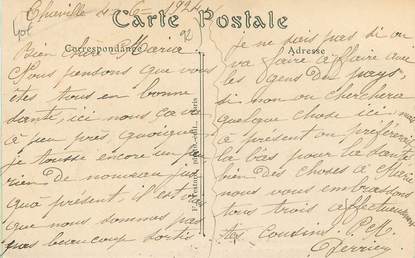 Carte Postale
Correspondance
Adresse
Bien chère Maria
Nous pensons que vous
êtes tous en bonne
santé, ici nous ça va
à peu près quoique
je tousse encore un peu
rien de nouveau jus
qu'à présent, il est vrai
que nous sommes pas
pas beaucoup sortis
je ne sais pas si on
va faire affaire avec
les gens du pays,
si non on cherchera
quelque chose ici, mais
à présent on préférerai
là bas pour la santé
bien des choses à
nous vous embrassons
tous trois affectueusement
tes cousins